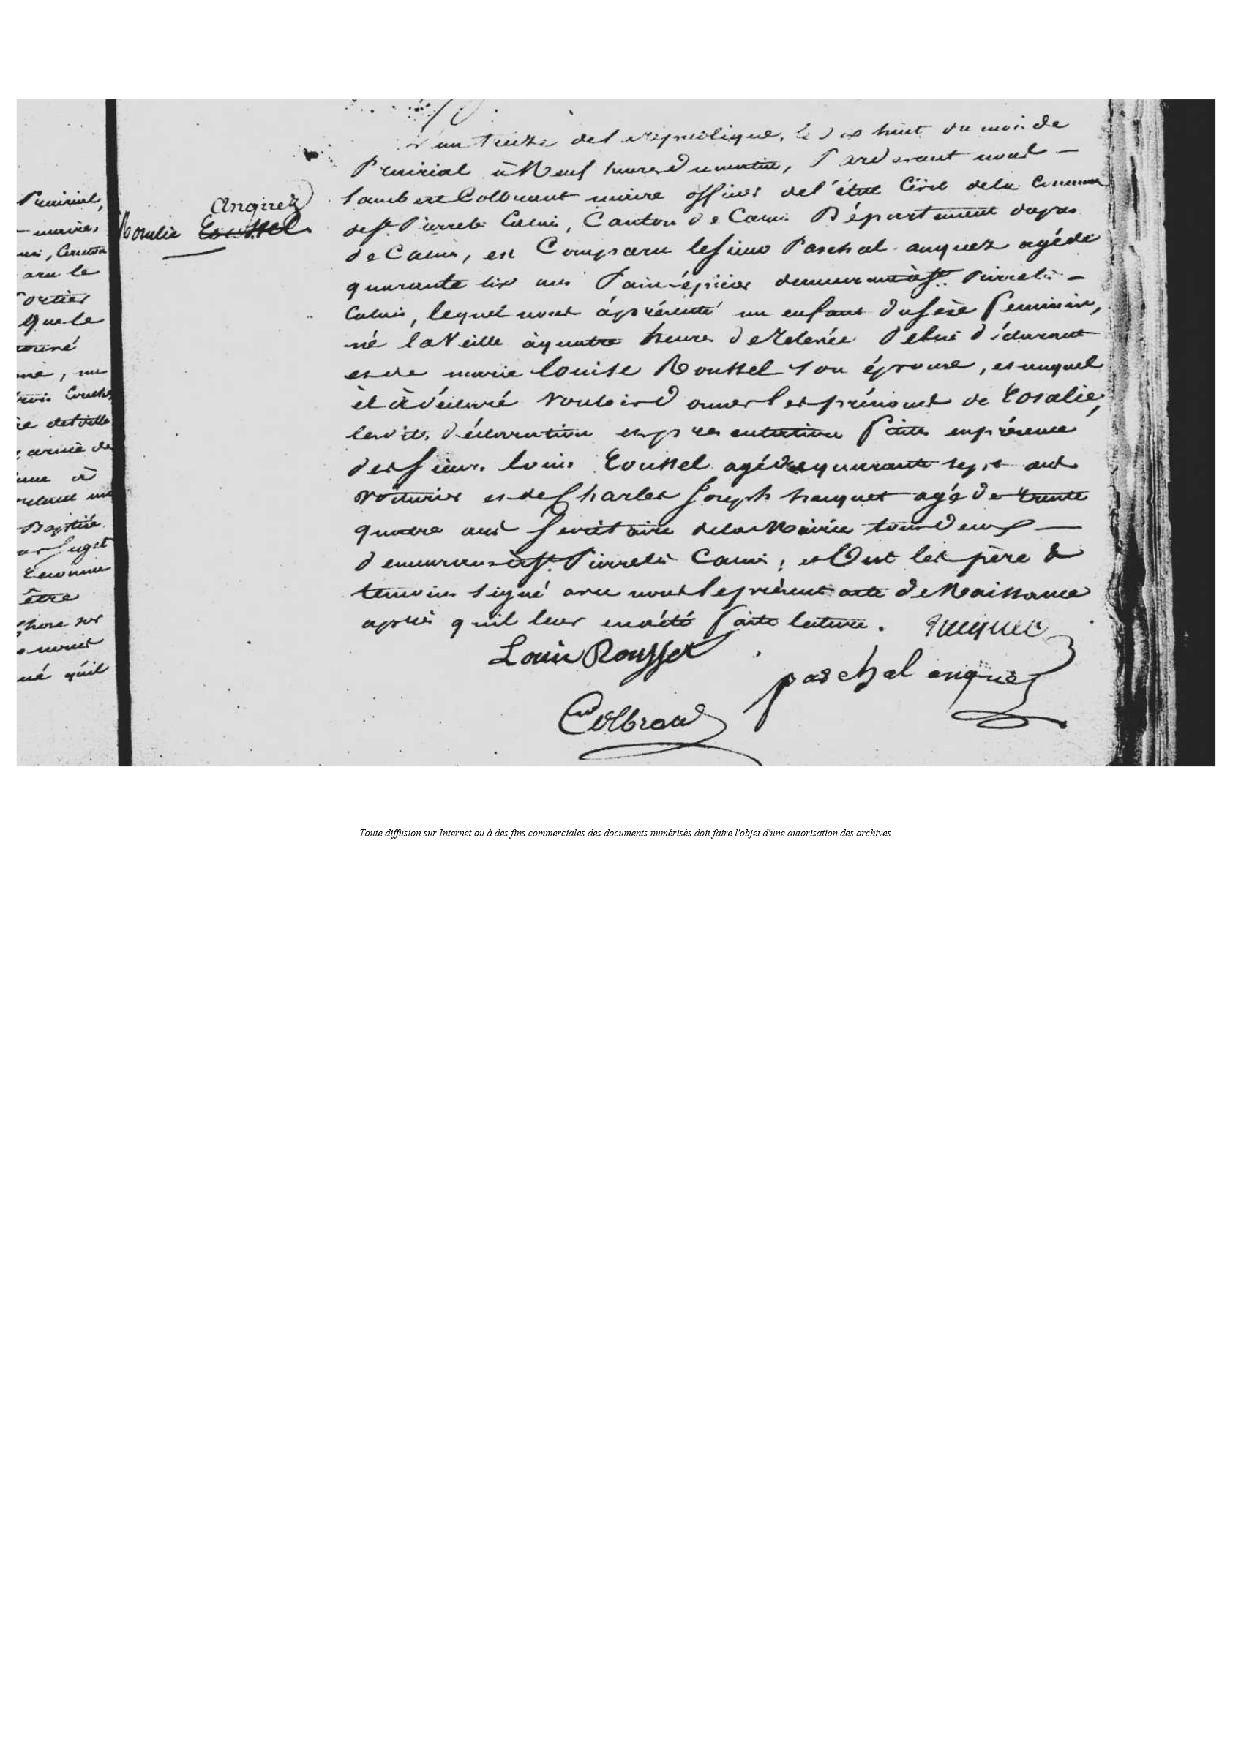 Prairial,
Anquez
Rosalie Roussel
L'an treize de la république, le dix huit du mois de
Prairial à Neuf heures du matin, Pardevant nous —
Lambert Colbrant maire officier de l'état Civil de la Commune
de St. Pierre lès Calais, Canton de Calais Département du pas
de Calais, est Comparu le sieur Paschal anquez agé de
quarante six ans Pain-épicier demeurant à St. Pierre lès —
Calais, lequel nous à présenté un enfant du sèxe féminin,
né la veille à quatre heures de Relevée de lui déclarant
et de marie Louise Roussel son épouse, et auquel
il à déclaré vouloir donner les prénoms de Rosalie,
lesdites déclaration et présentation faites en présence
des sieurs Louis Roussel agé de quarante sept ans
voiturier et de Charles Joseph hauquet agé de trente
quatre ans Secrétaire de la Mairie tous deux —
demeurans à St. Pierre lès Calais ; et Ont les père &
temoins signé avec nous le présent acte de Naissance
après qu'il leur en à été faite lecture.
Louis Roussel
paschal anquez
Colbrant
Baptiste
être
Toute diffusion sur Internet ou à des fins commerciales des documents numérisés doit faire l'objet d'une autorisation des archives